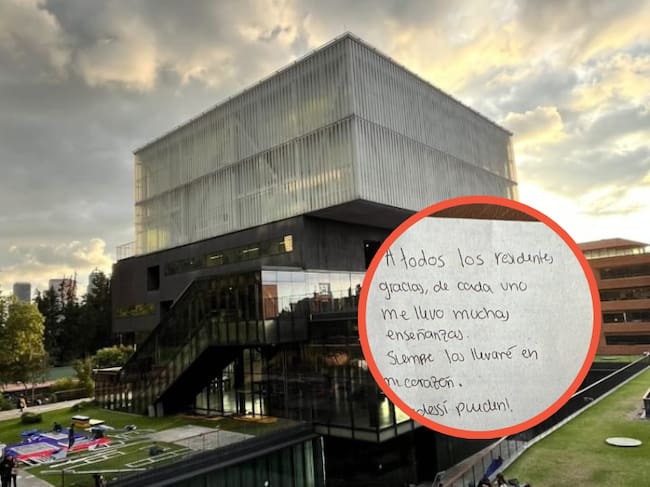 A todos los residentes
gracias, de cada uno
me llevo muchas
enseñanzas.
Siempre los llevaré en
mi corazón.
pueden!